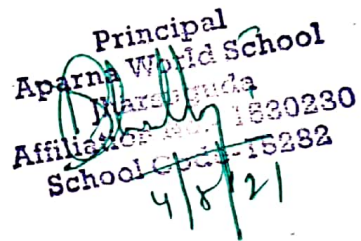 Principal
Aparna World School
Jharsuguda
Affiliation No. 1530230
School Code-15282
4/8/21